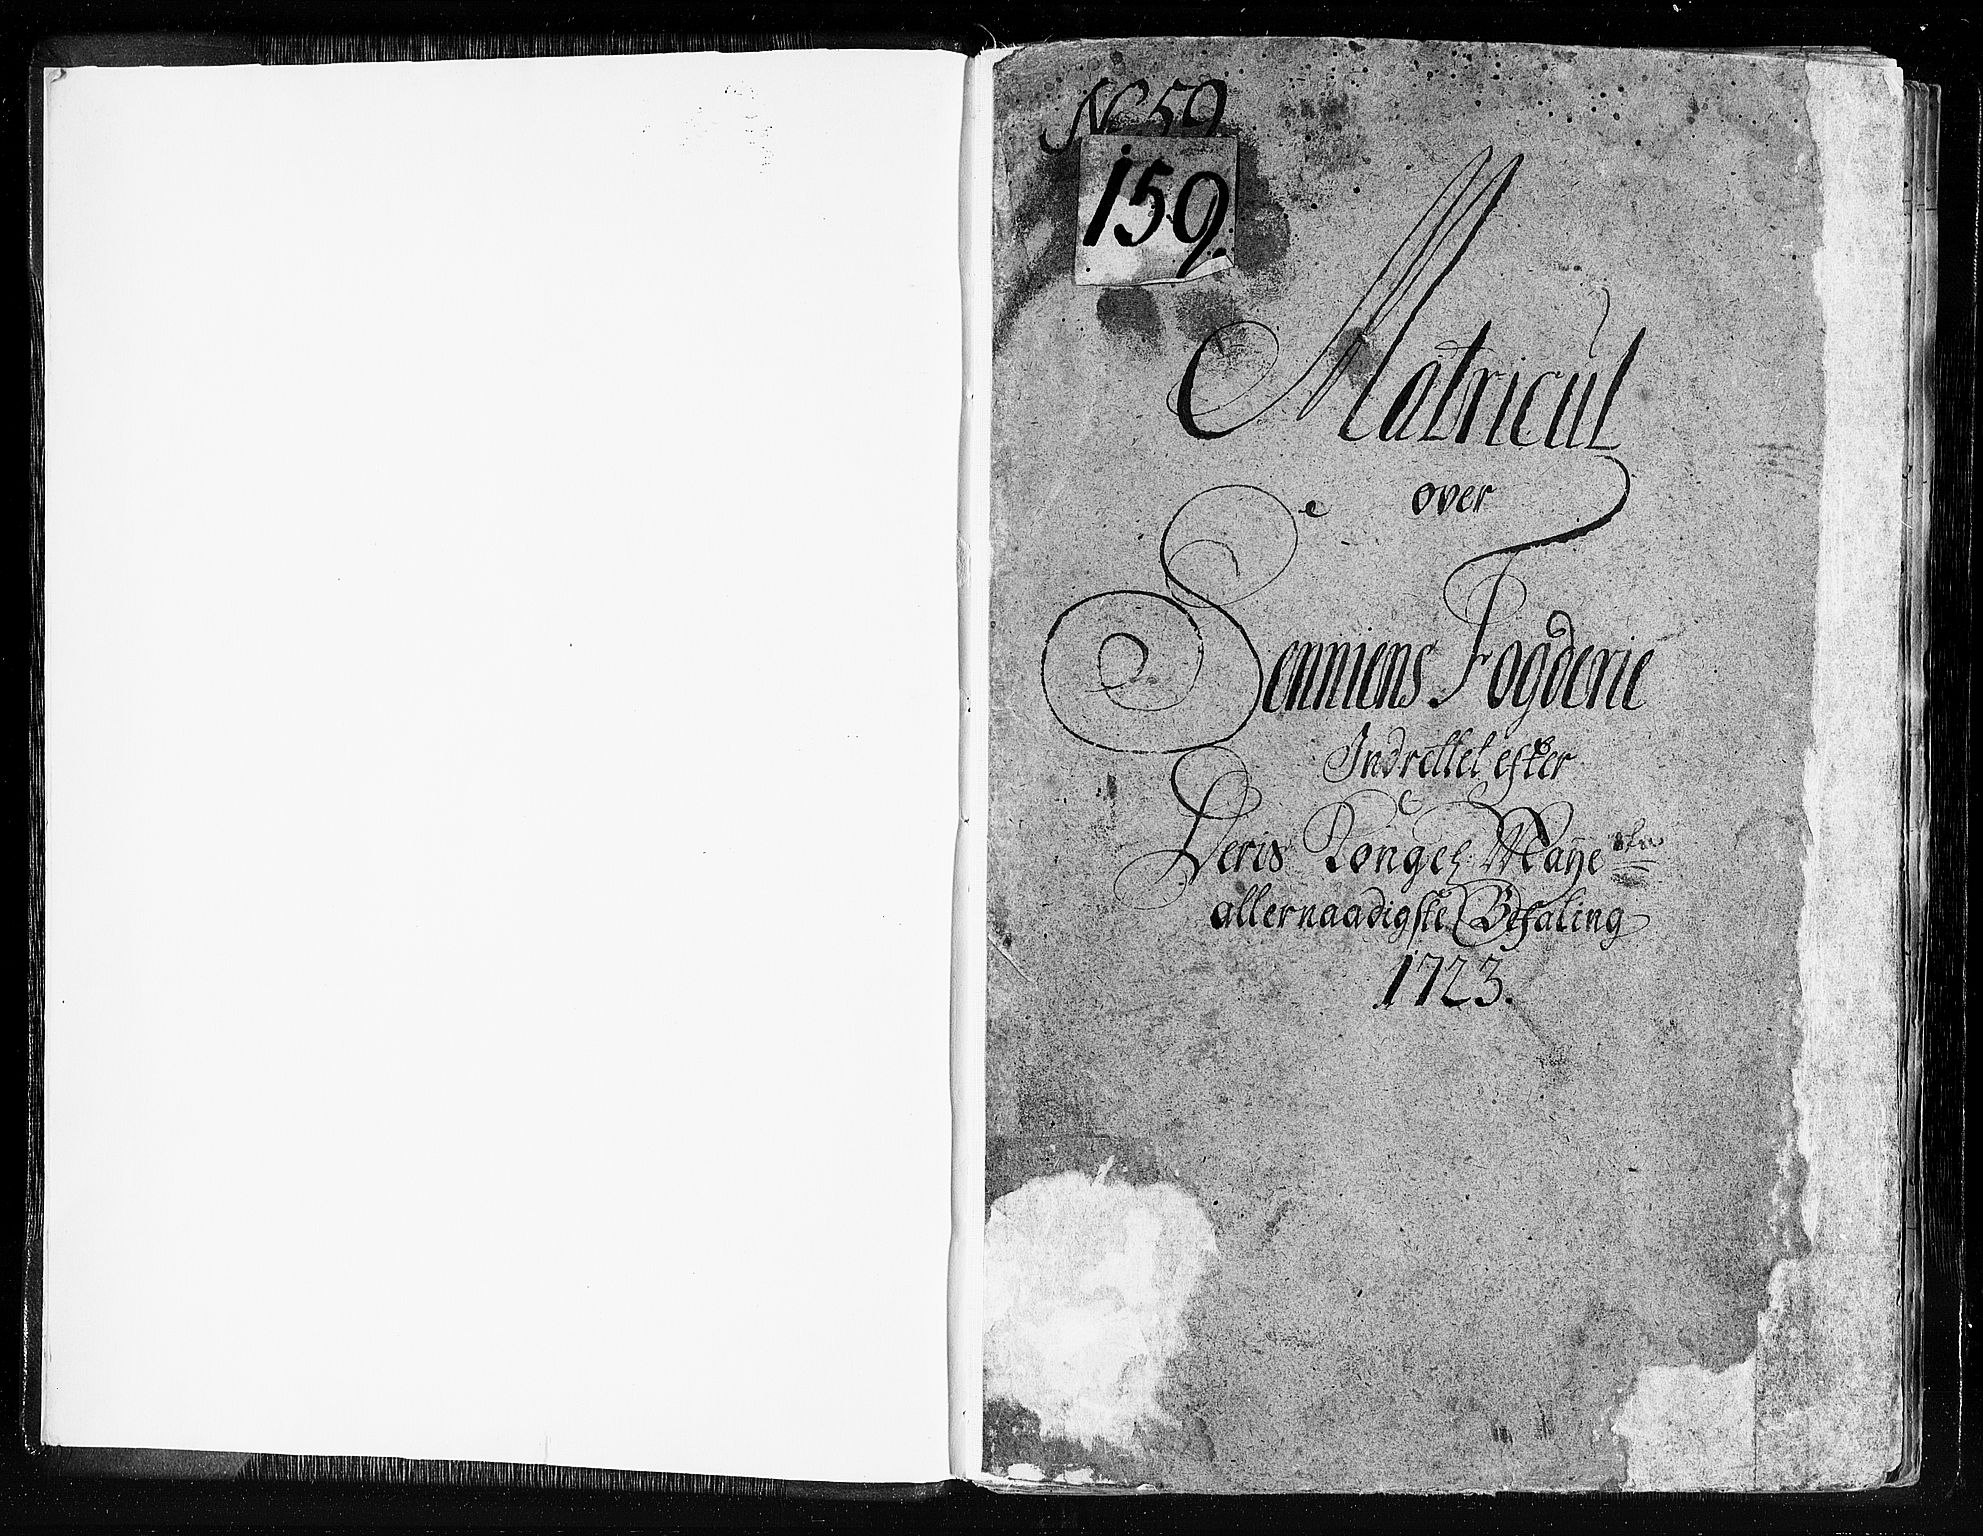 No 59
159.
Matricul
over
Senniens Fogderie
Indrettet efter
Deris Kongel Maye sten
allernaadigste Befaling
1723.